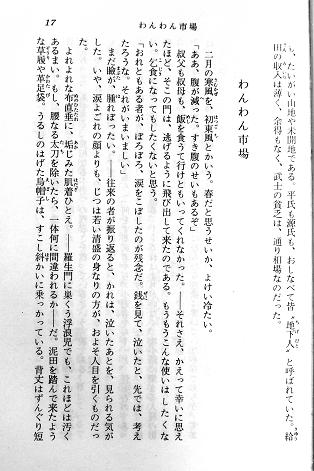 わんわん市場
17
ち、たいが、山地や未開地である。平氏も源氏も、おしなべて昔〝地下人〟と呼ばれていた。給
田の収入は薄く、余得もなく、武士の貧乏は、通り相場なのだった。
わんわん市場
二月の寒風を、初東風とかいう。春だと思うせいか、よけい冷たい。
「ああ、腹が減った。すき腹のせいもあるぞ」
叔父も叔母も、飯を食うて行けともいってくれなかった。――それさえ、かえって幸いに思え
たほど、そこの門は、逃げるように飛び出して来たのである。もうもうこんな使いはしたくな
い。乞食になってもしたくないと思う。
「おれともある者が、ぽろぽろ、涙をこぼしたのが残念だ。銭を見て、泣いたと、先では、考え
たろうな。それがいまいましい」
まだ瞼が、腫れぼったい。――往来の者が振り返ると、かれは、泣いたあとを、見られる気が
した。いや、涙よごれの顔よりも、じつは若い清盛の身なりの方が、およそ人目を引くものだっ
た。
よれよれな布直垂に、垢じみた肌着ひとえ。――羅生門に巣くう浮浪児でも、これほどは汚く
あるまい。もし、腰なる太刀を除いたら、一体何に間違われるか――だ。泥田を踏んで来たよう
な草履や革足袋。うるしのはげた烏帽子は、すこし斜かいに乗っかっている。背丈はずんぐり短